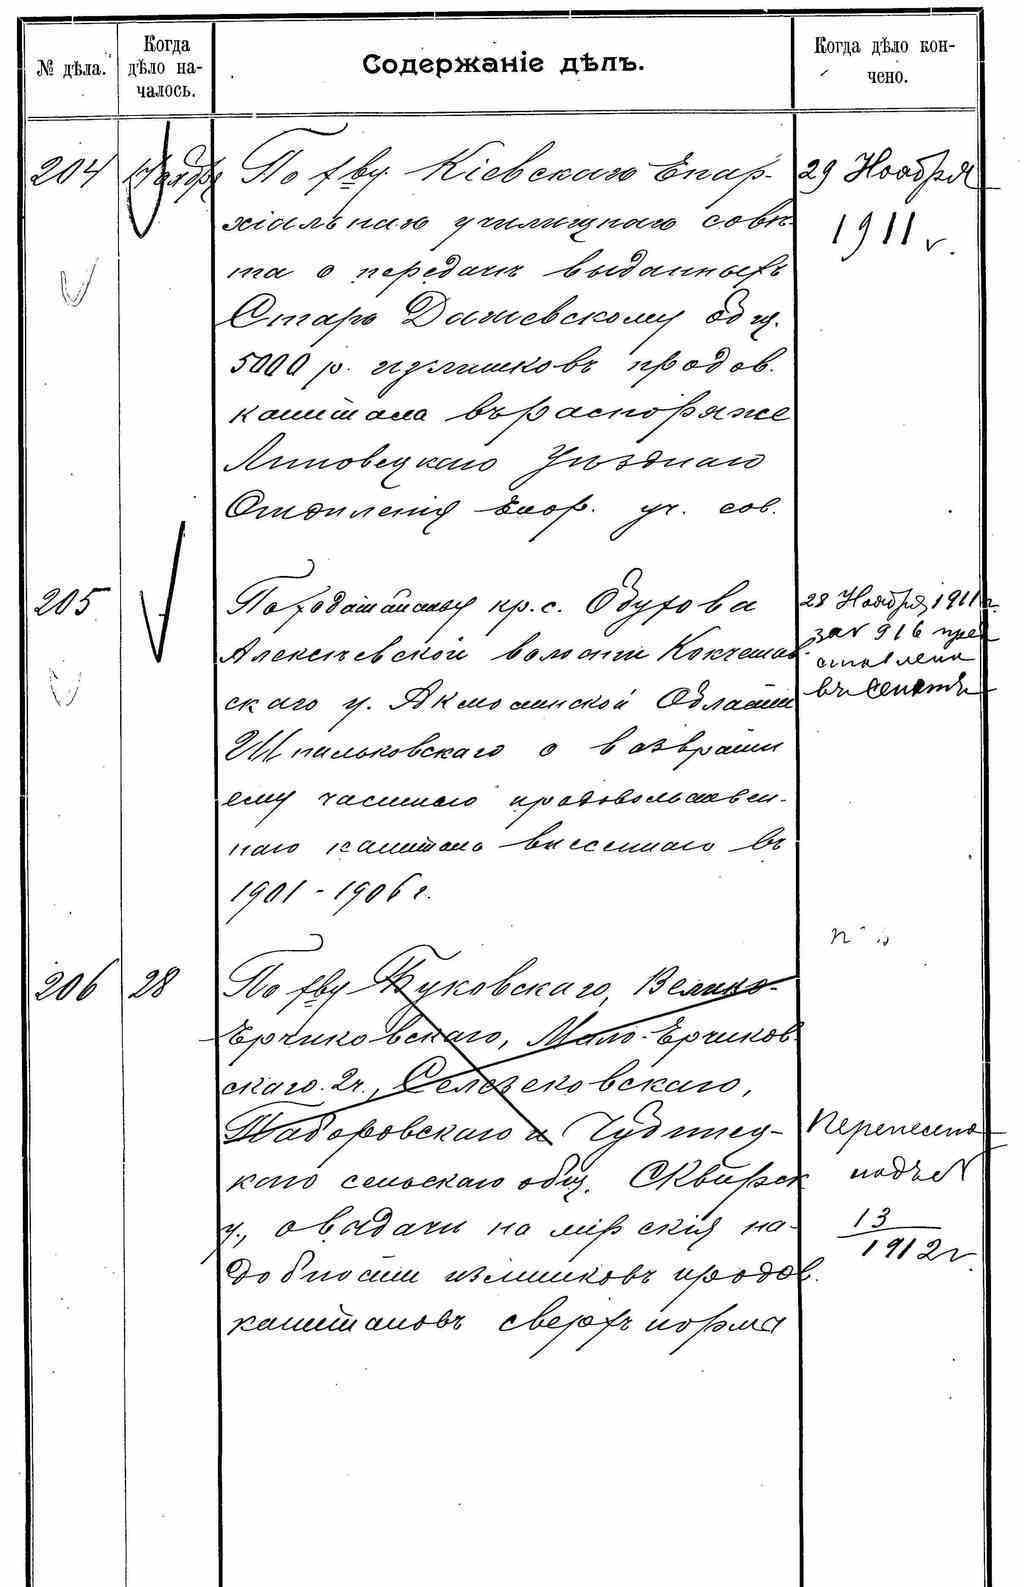 № дѣла.
Когда
дѣло на-
чалось.
Содержаніе дѣлъ.
Когда дѣло кон-
чено.
204
Ноября
По хву Кіевскаго Епар-
хіальнаго училищнаго совѣ-
та о передачѣ выданныхъ
Старо Дашевскому общ.
5000 р. излишковъ продов.
капитала въ распоряже
Липовецкаго Уѣзднаго
Отдѣленія Епар. уч. сов.
29 Ноября
1911 г.
205
По ходатайству кр. с. Обухова
Алексѣевской волости Кокчетав
скаго у. Акмолинской Области
Шпильковскаго о возврати
ему частнаго продовольствен-
наго капитала внесеннаго въ
1901 - 1906 г.
28 Ноября 1911 г.
за № 916 пред
ставлено
въ Сенатъ
206
28
По хву Буковскаго, Велико-
Ерчиковскаго, Мало-Ерчиков
скаго 2ч., Селезеновскаго,
Таборовскаго и Чубинец-
каго сельскаго общ. Сквирск
у., о выдачи на мірскія на-
добности излишковъ продов.
капиталовъ сверхъ норма
Перенесено
подъ №
13
1912 г.